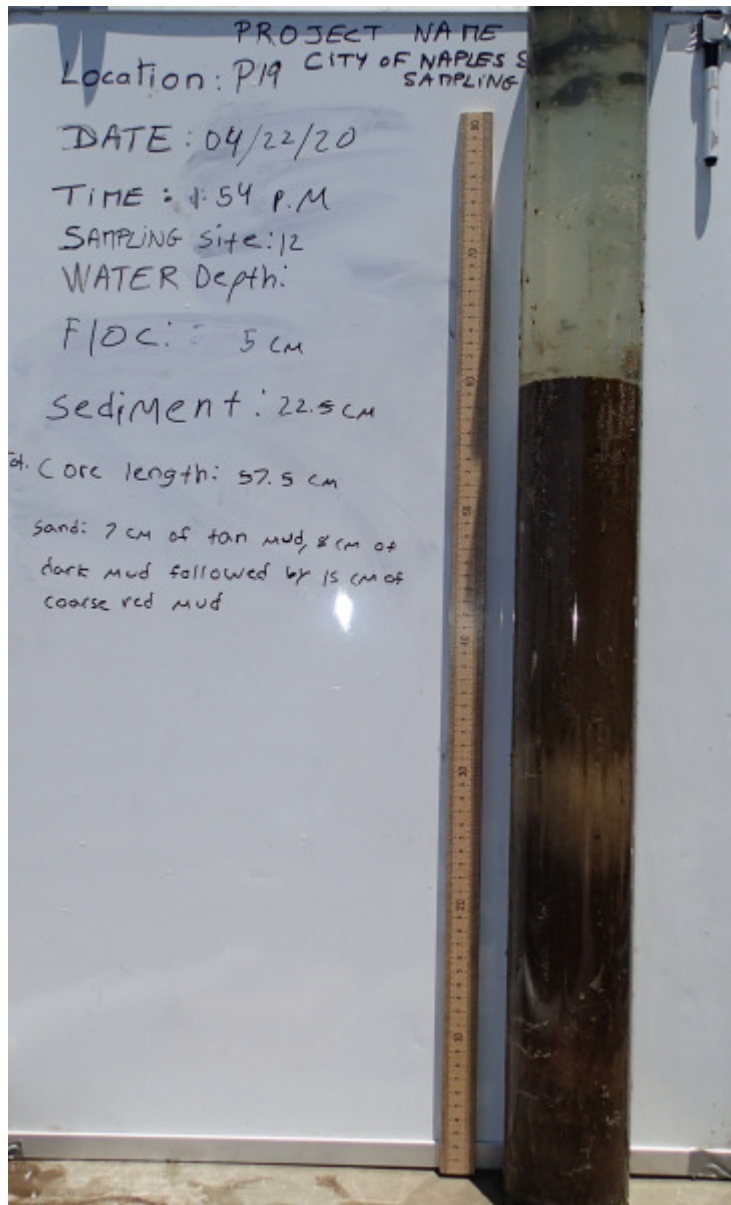 PROJECT NAME
CITY OF NAPLES S
SAMPLING
Location: P19
DATE: 04/22/20
TIME: 1:54 P.M
SAMPLING Site: 12
WATER Depth:
Floc: 5 cm
Sediment: 22.5 cm
Tot. Core length: 57.5 cm
Sand: 7 cm of tan mud, 8 cm of
dark mud followed by 15 cm of
coarse red mud
80
70
60
50
40
30
20
10